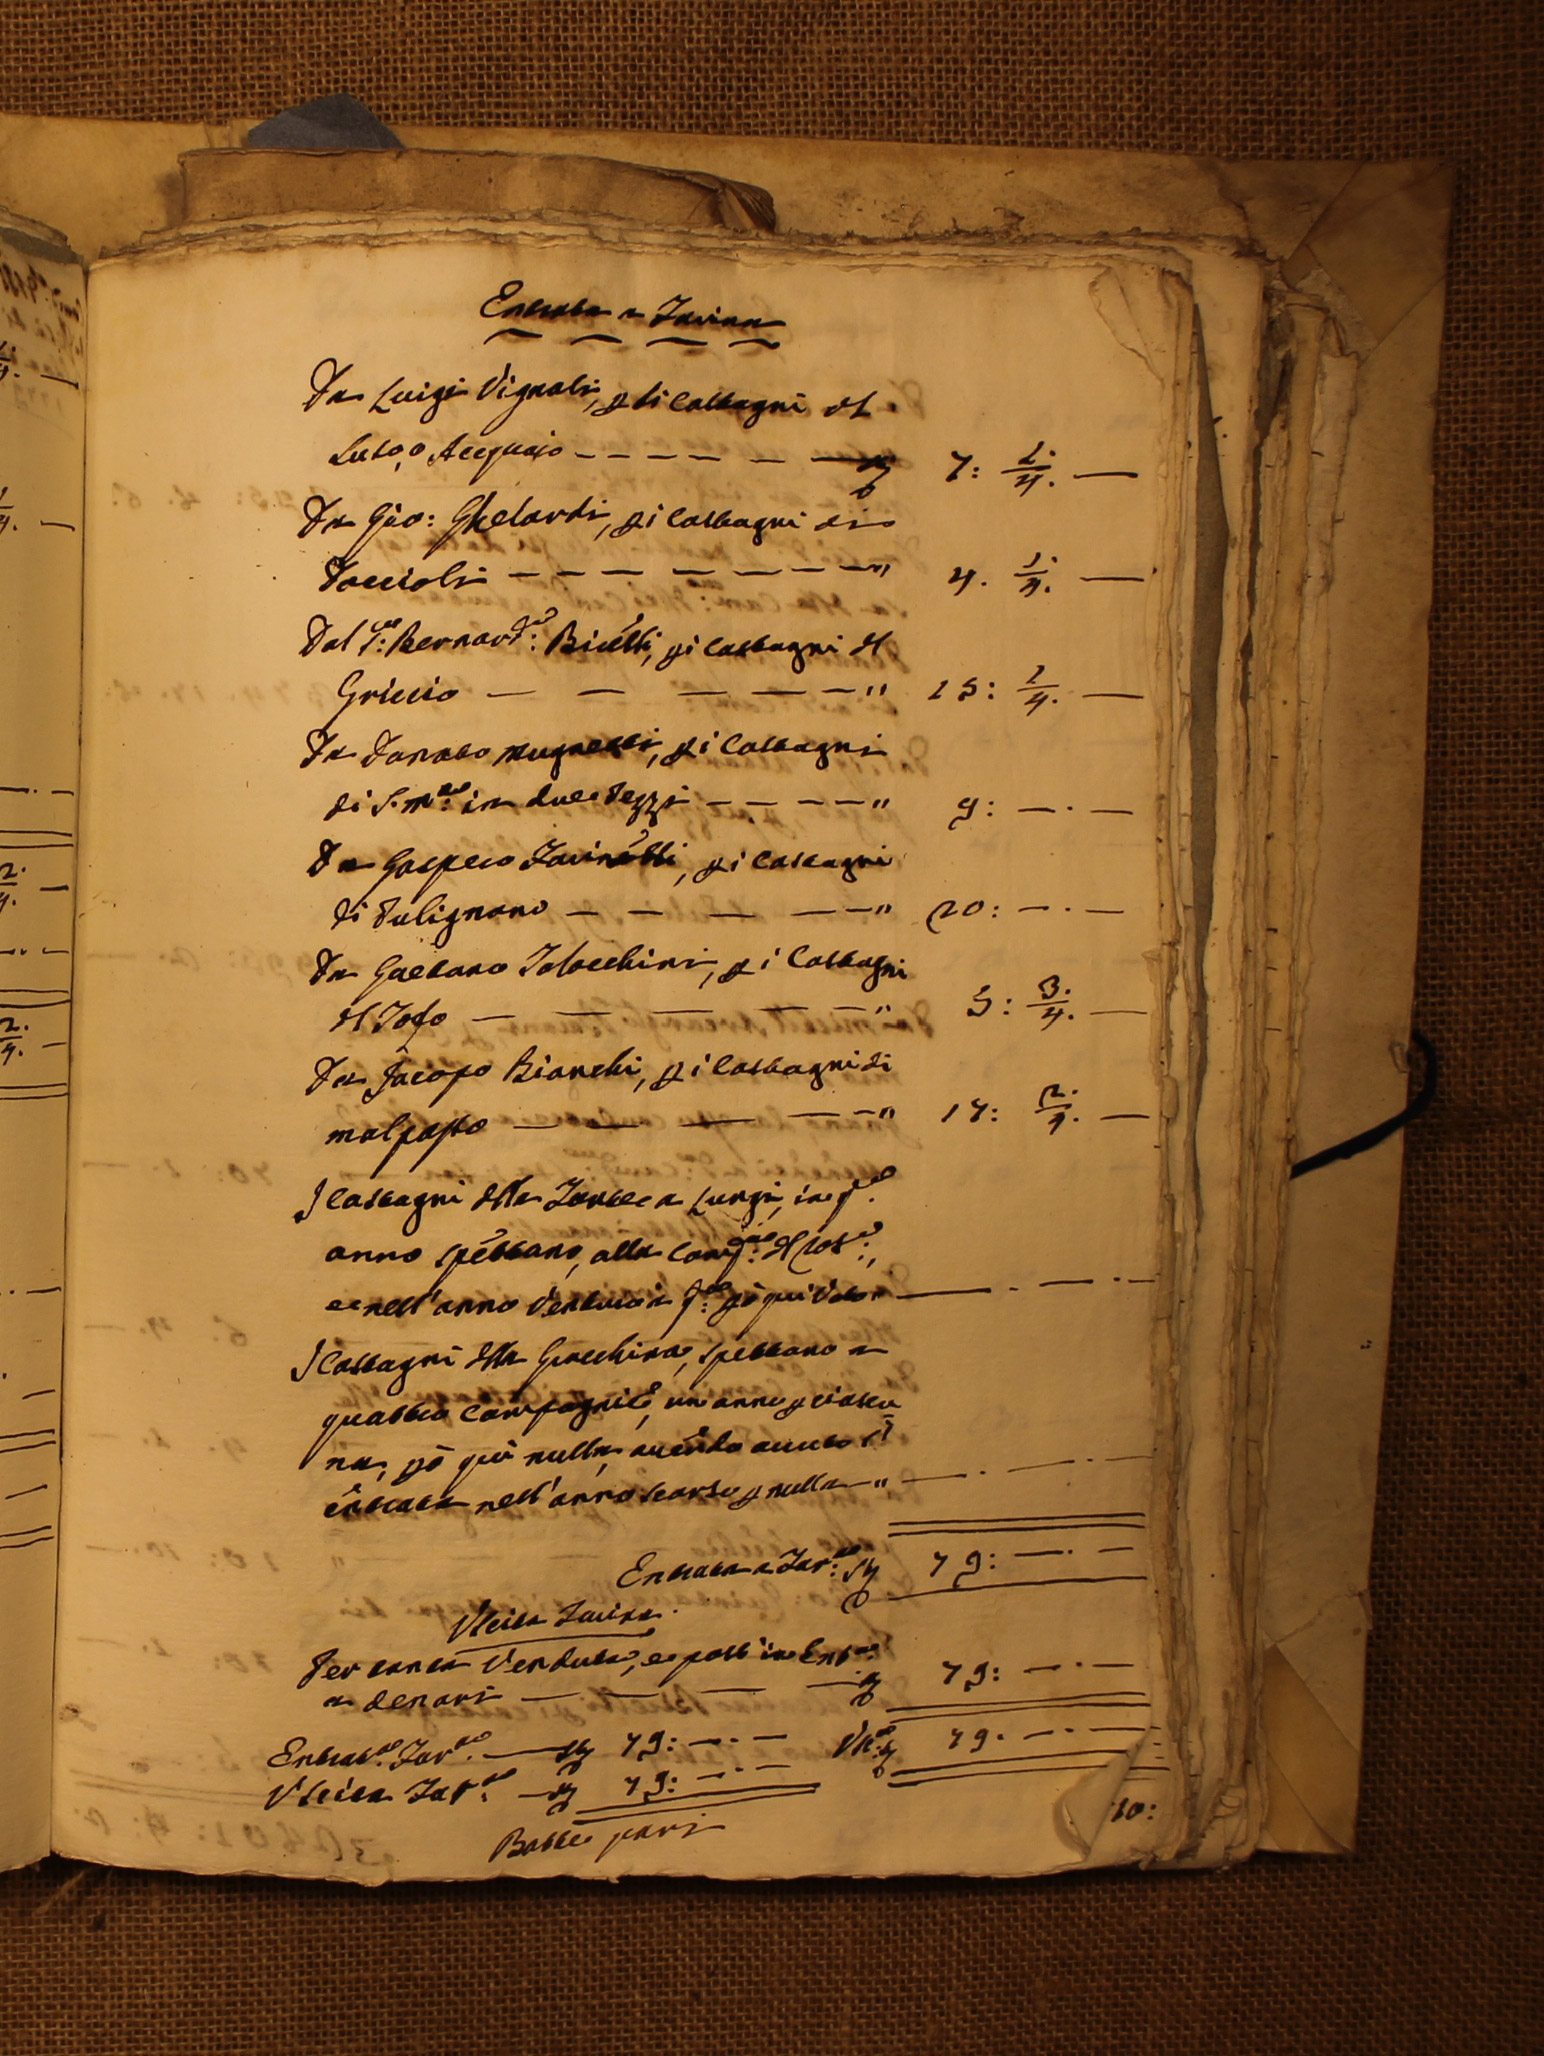 Entrata a Farina
Da Luigi Vignali, p li Castagni del
Luto, o Acquaio - - - - - - 7: 1/4. —
Da Gio: Ghelardi, p i Castagni di
Doccioli - - - - - - - " 4. 1/4. —
Dal Sre: Bernardo: Bicelli, p i Castagni del
Griccio — — — — — " 15: 1/4. —
Da Donato Mugnetti, p i Castagni
di S. Mra: in due Pezzi - - - - " 9: — . —
Da Gaspero Farinelli, p i Castagni
di Pulignano — — — — — " 20: — . —
Da Gaetano Tolocchini, p i Castagni
del Fosso — — — — — " 5: 3/4. —
Da Jacopo Bianchi, p i Castagni di
Malpasso — — — — — " 17: 2/4. —
I Castagni della a Lungi, in qsto
anno spettano, alla Compia: del Rosrio:,
e nell'anno Venturo a qsta: pò qui — . — . —
I Castagni della Gucchina, spettano a
quattro Compagnie, un anno p ciascu
na, pò qui nulla, avendo avuto l'
entrata nell'anno scorso p nulla — " — . — . —
Entrata a Farna: 79: — . —
Uscita Farina.
Per tanta Venduta, e post' in Entta:
a denari — — — — 79: — . —
Entrata: Farna: — 79: — . — Usta: 79. — . —
Uscita Farna: — 79: — . —
Batte pari
10: